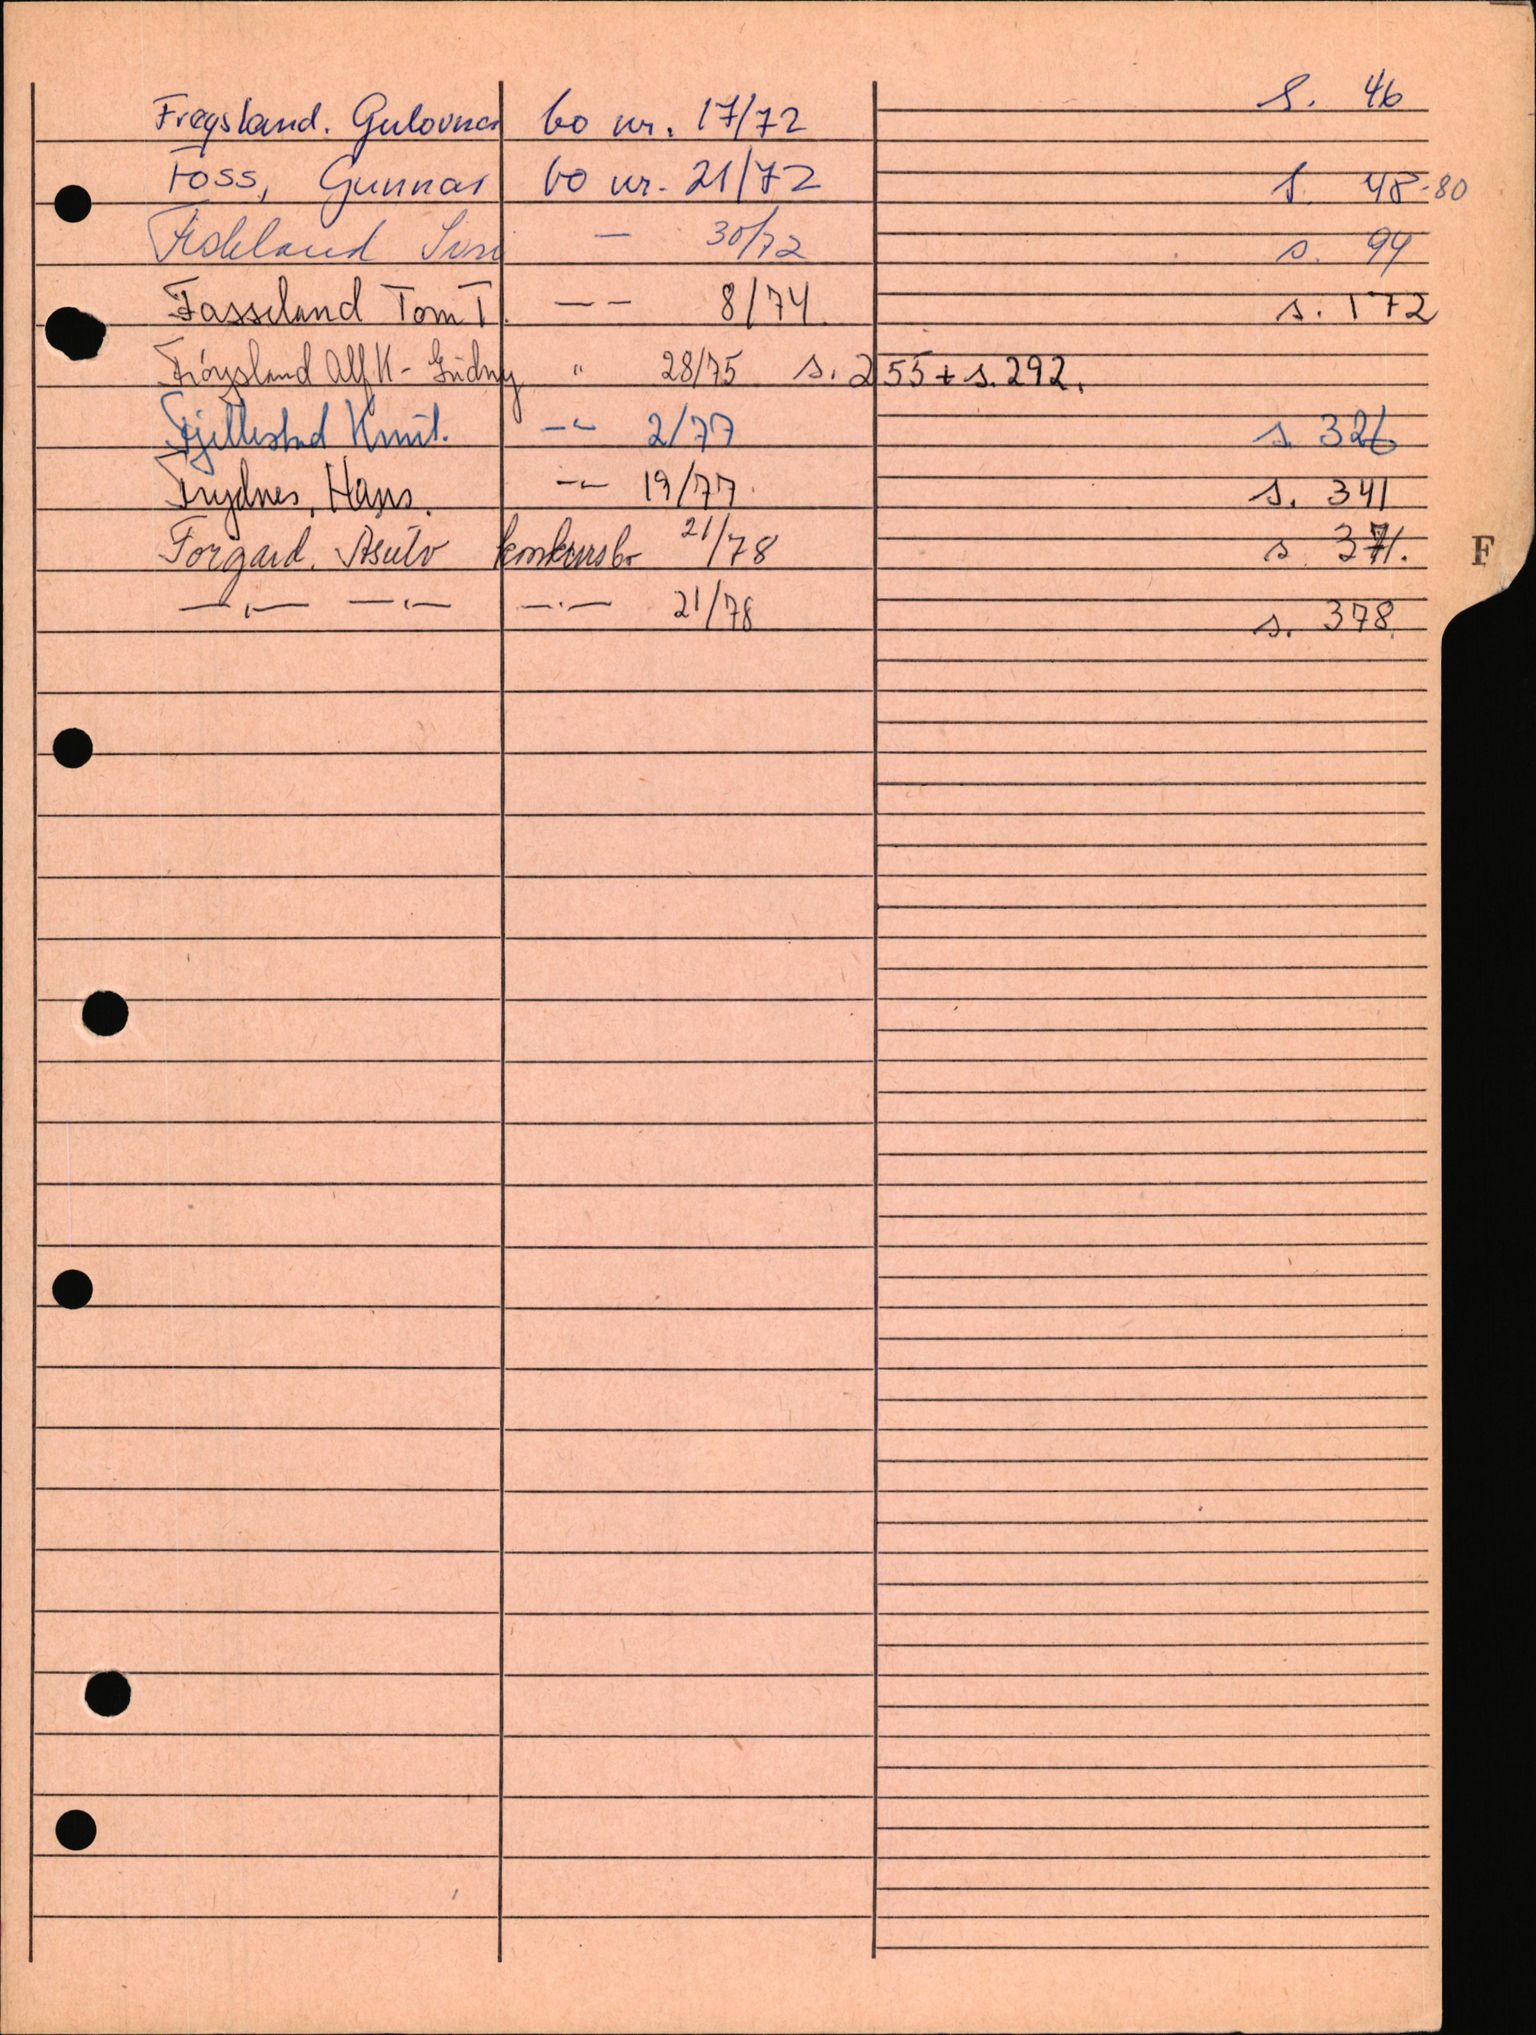 Frøysland. Gulovnar bo nr. 17/72 S. 46
Foss, Gunnar bo nr. 21/72 S. 48-80
Fiskland — 30/72 s. 94
Fasseland Tom T. — — 8/74 s. 172
Frøysland Alf K - Gudny " 28/75 s. 255 + s. 292.
Fjellestad Knut. —"— 2/77 s 326
Frydnes, Hans. —"— 19/77. s. 341
Forgard. Asulv konkursbo 21/78 s 371.
—,,— —,,— —,,— 21/78 s. 378.
F